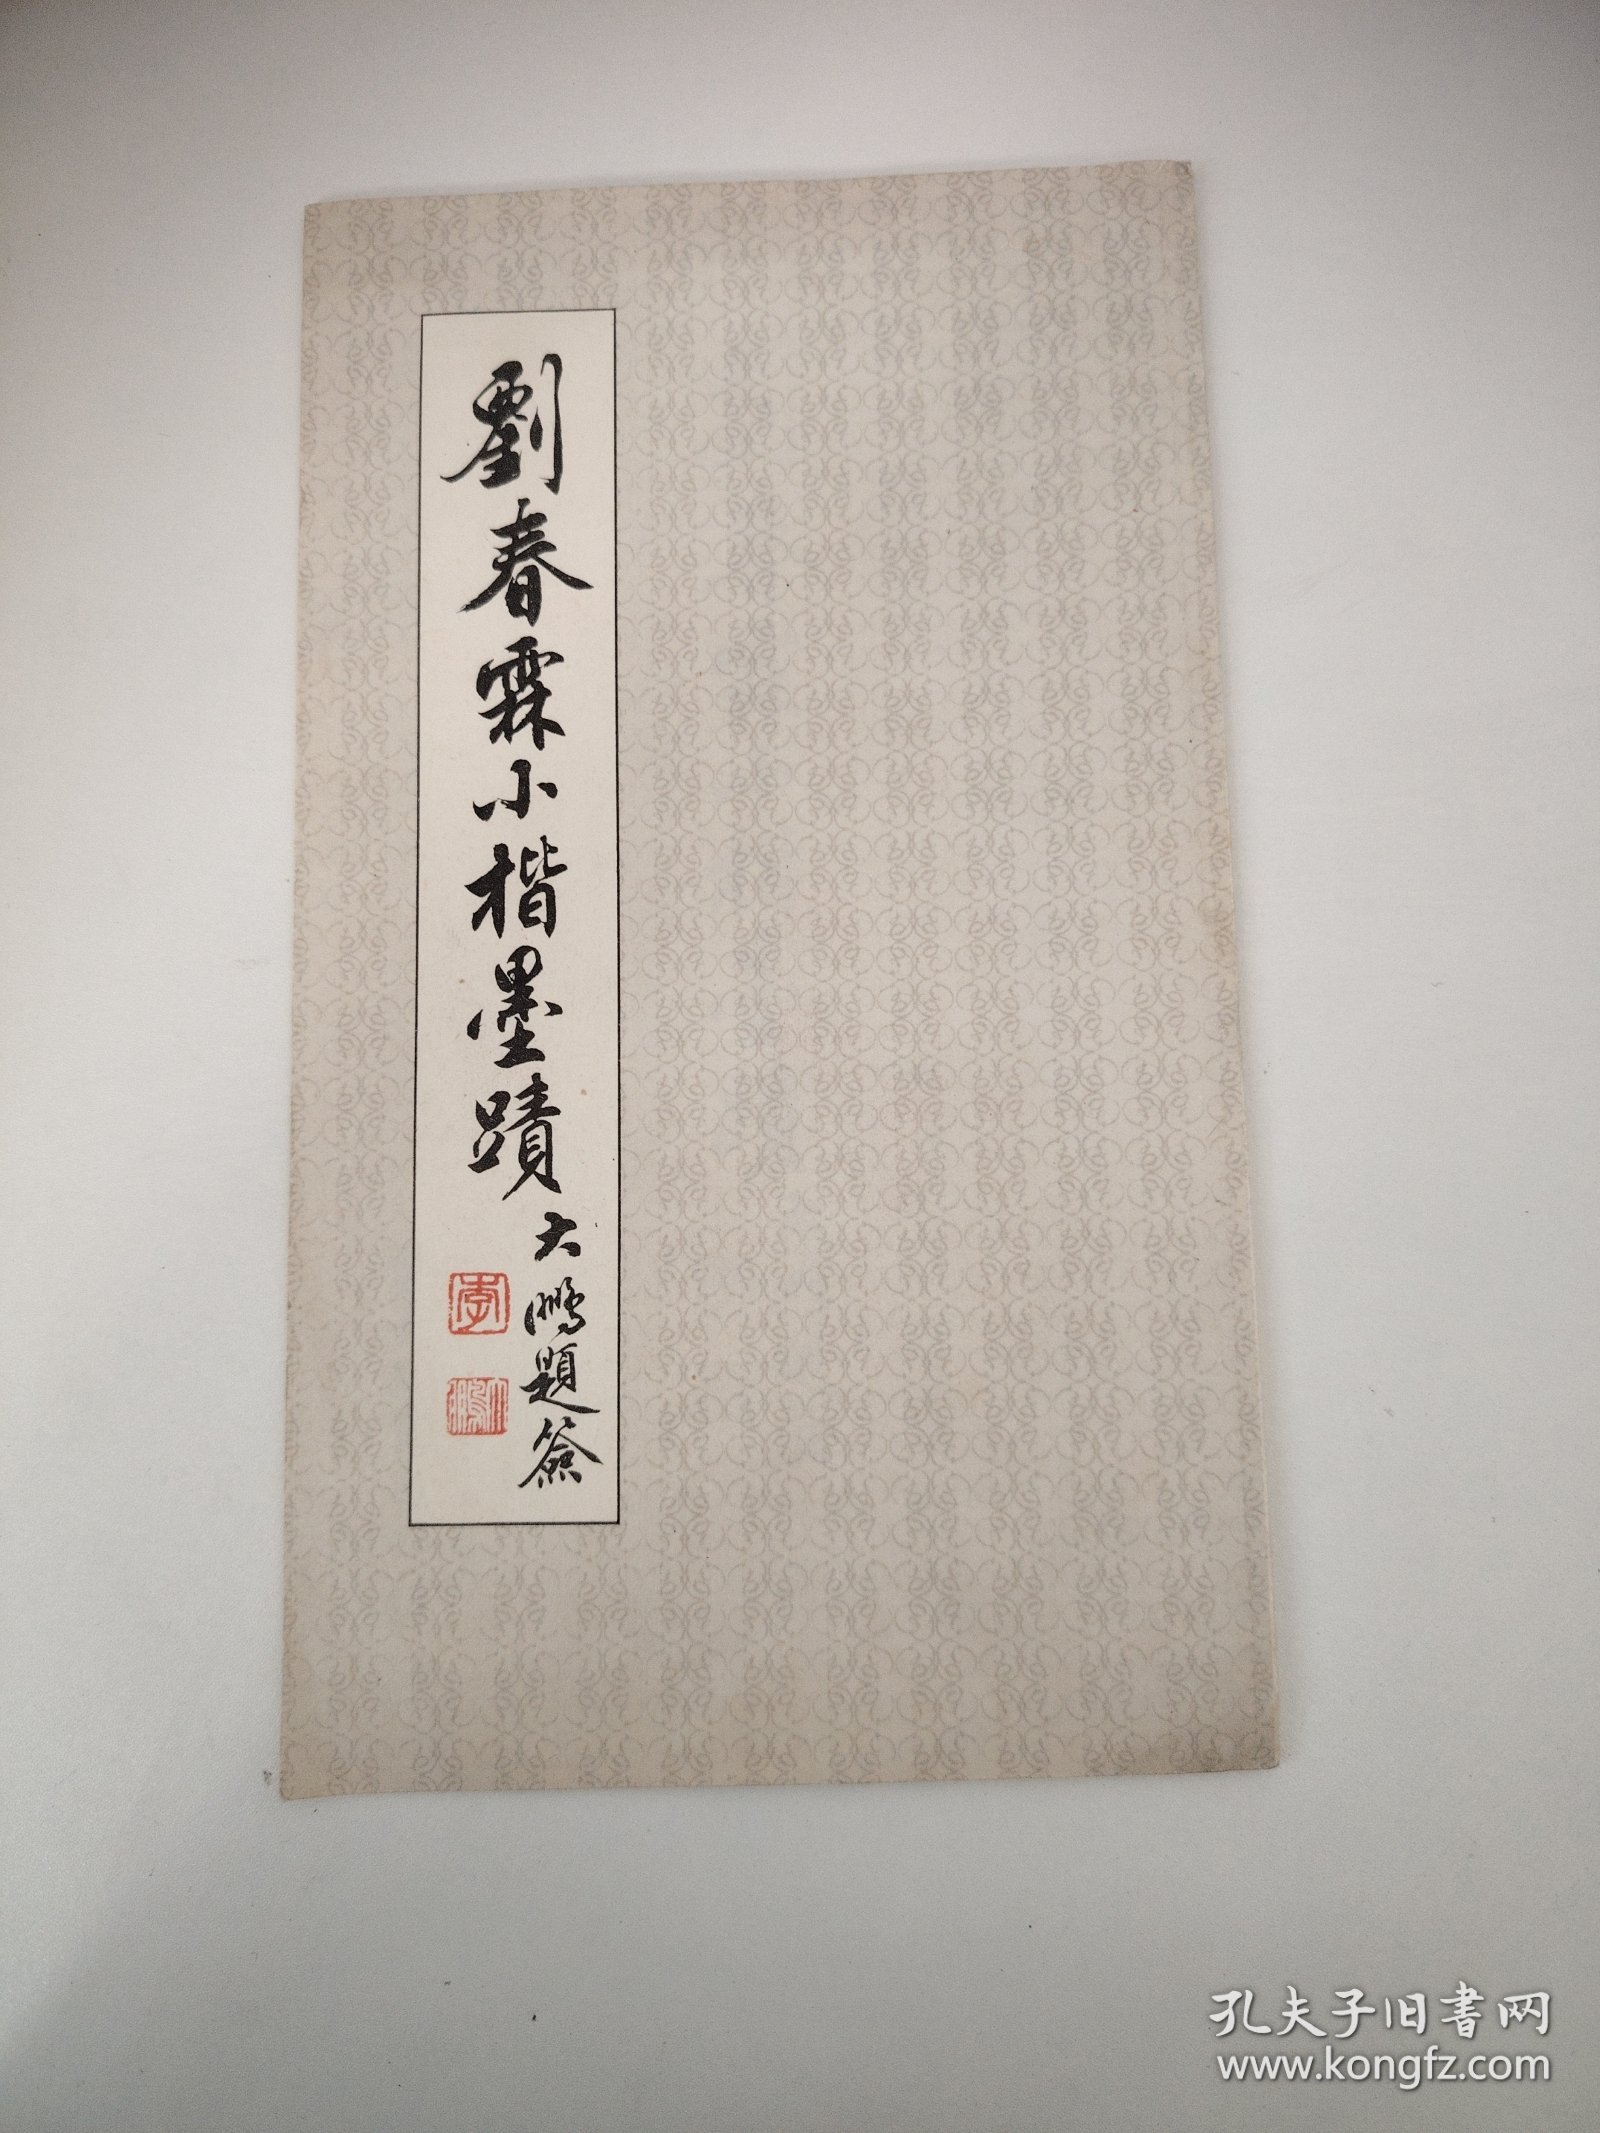 劉春霖小楷墨蹟
大鵬題簽
李
大鵬
孔夫子旧书网
www.kongfz.com